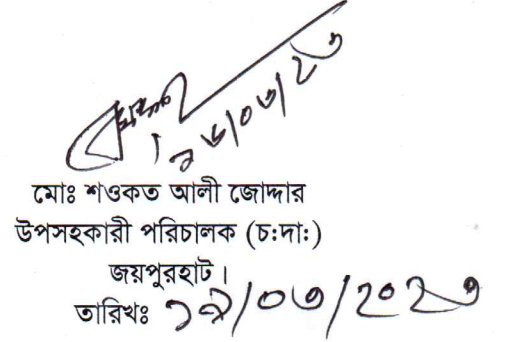 ১৬/০৩/২৩
মোঃ শওকত আলী জোদ্দার
উপসহকারী পরিচালক (চ:দা:)
জয়পুরহাট।
তারিখঃ ১৯/০৩/২০২৩